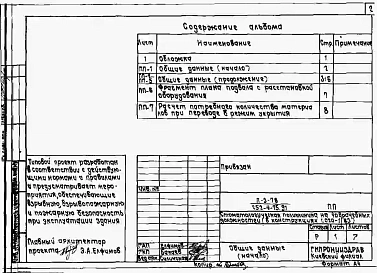 2
Содержание альбома
Лист Наименование Стр. Примечание
1 Обложка 1
ПП-1 Общие данные (начало) 2
ПП-5 Общие данные (продолжение) 3÷6
ПП-6 Фрагмент плана подвала с расстановкой
оборудования 7
ПП-7 Расчет потребного количества материа
лов при переводе в режим укрытия 8
Типовой проект разработан
в соответствии с действую-
щими нормами и правилами
и предусматривает меро-
приятия, обеспечивающие
взрывную, взрывопожарную
и пожарную безопасность
при эксплуатации здания
Главный архитектор
проекта З.А. Елфимов
Привязан
Инв.№
ПП
Стоматологическая поликлиника на
Стадия Лист Листов
Р 1 7
Общие данные
(начало)
ГИПРОНИИЗДРАВ
Киевский филиал
Формат А4